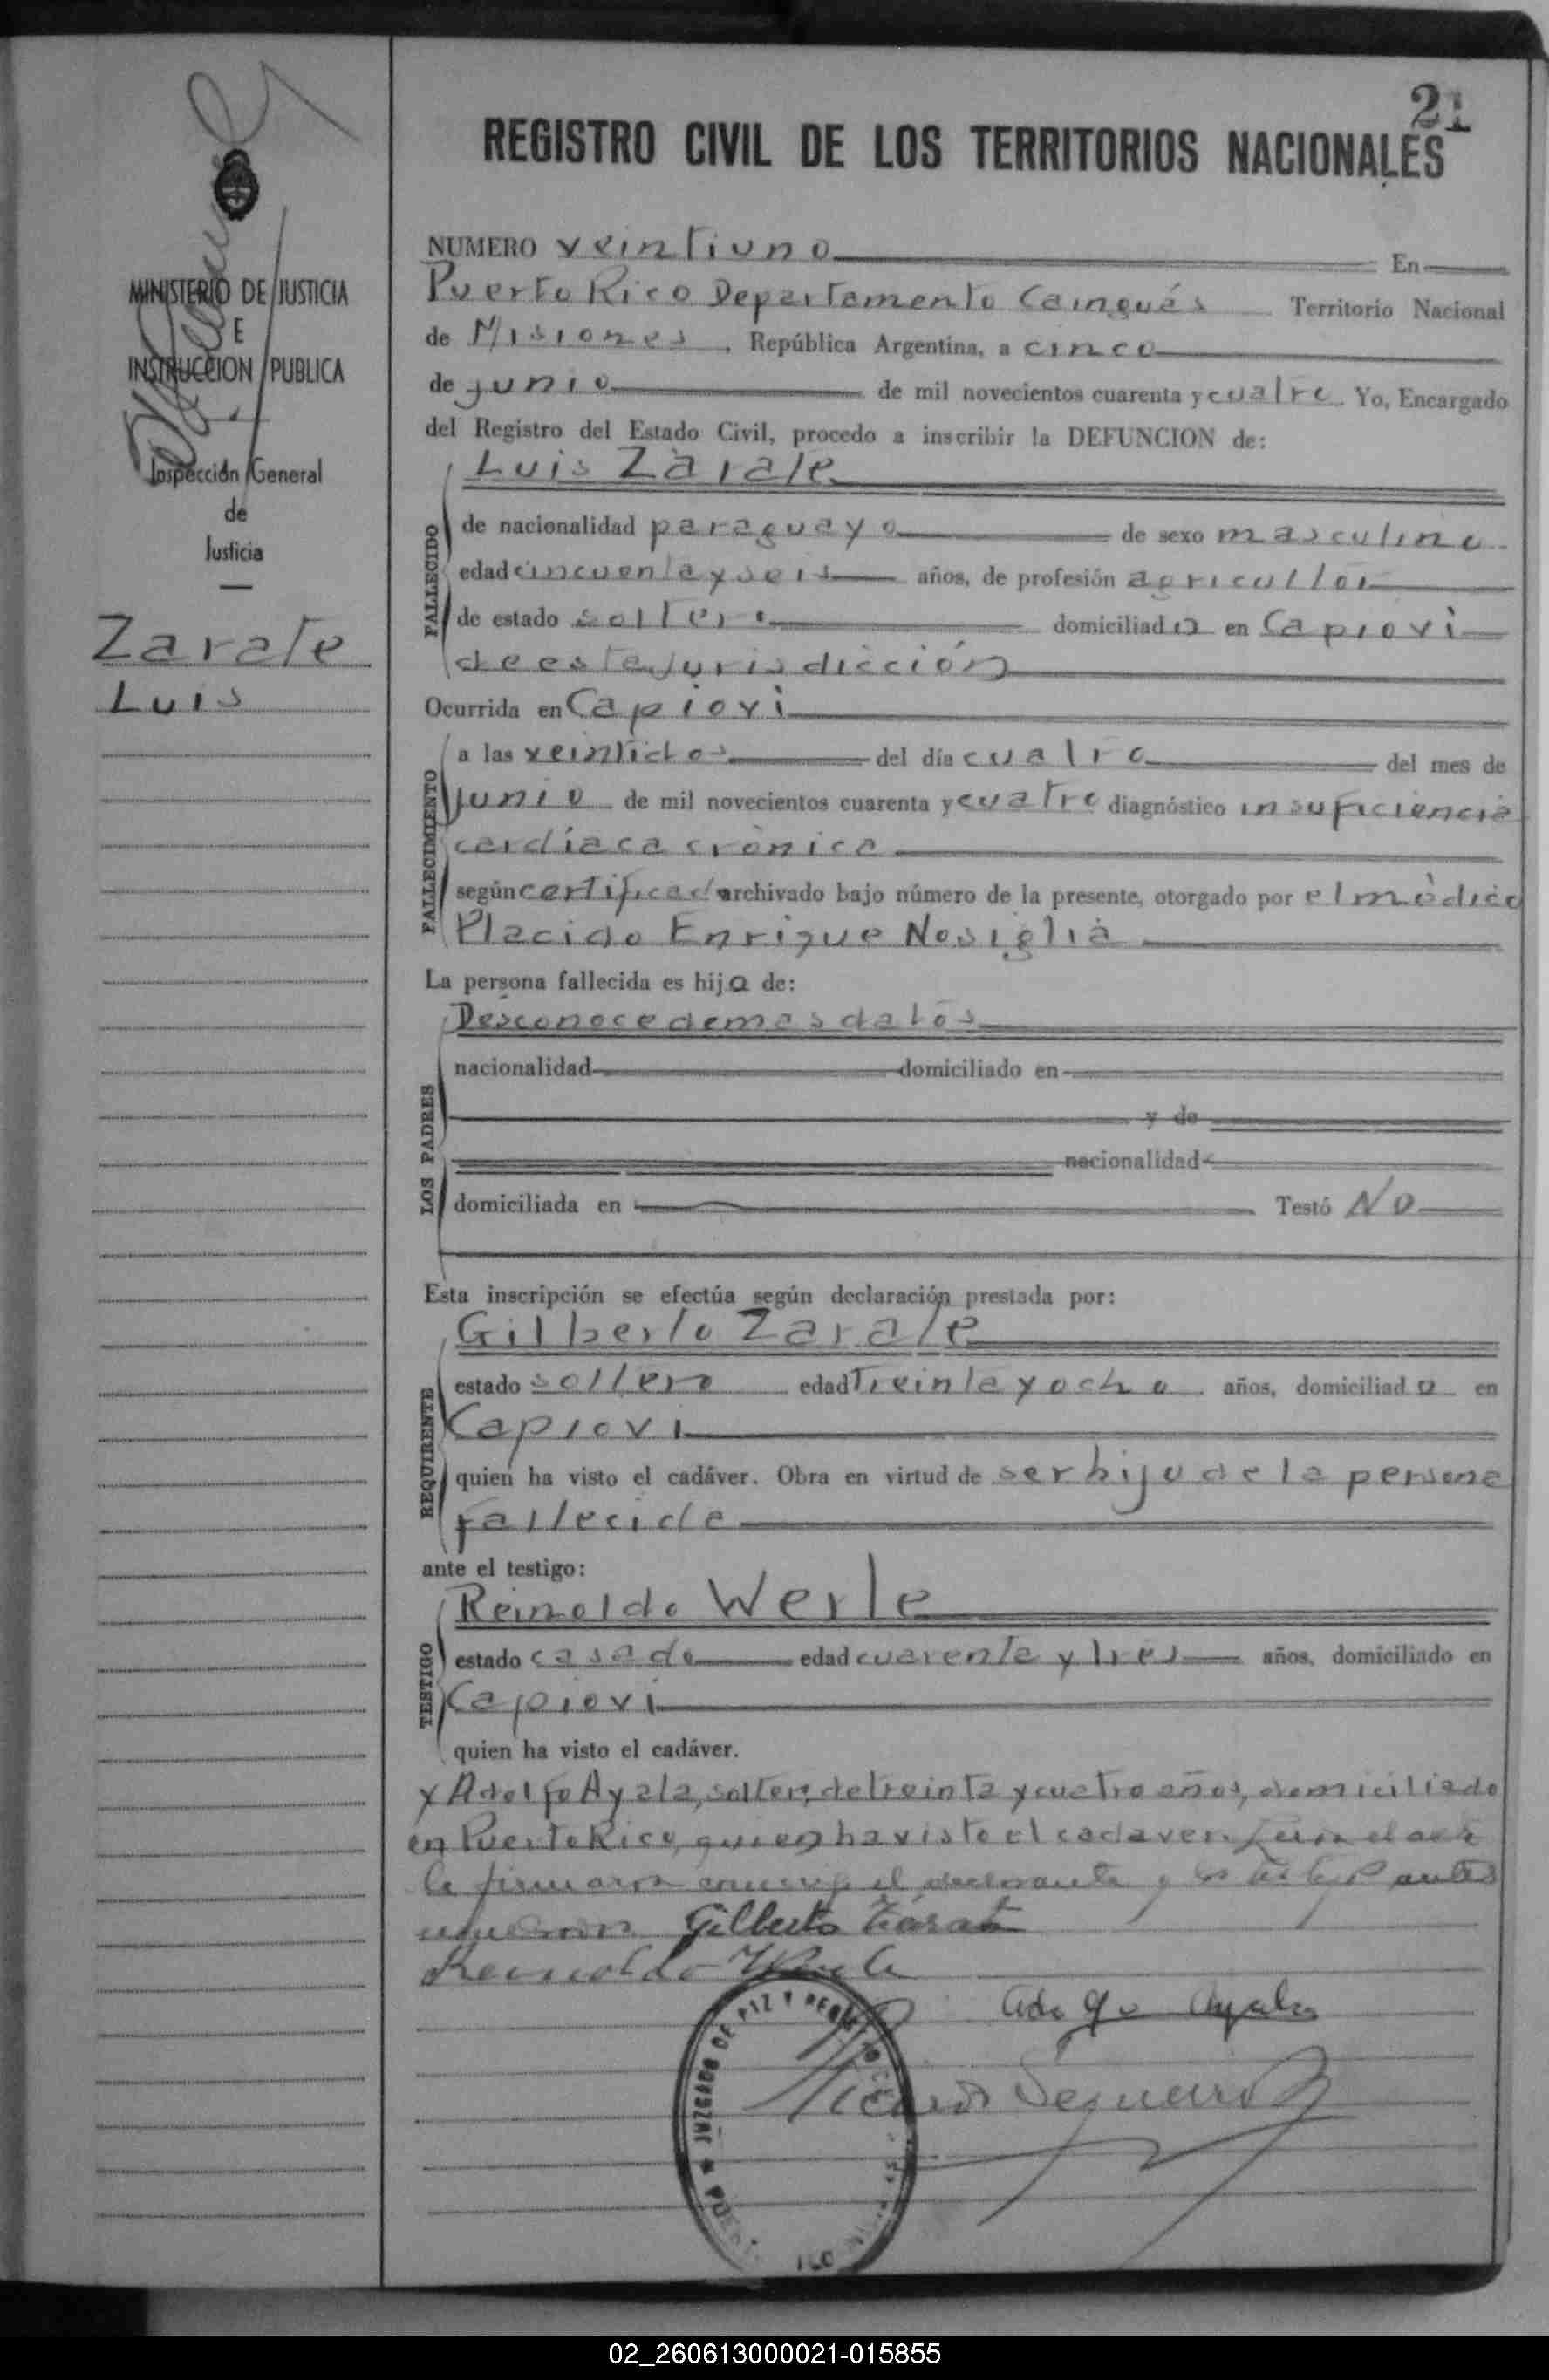 21
REGISTRO CIVIL DE LOS TERRITORIOS NACIONALES
MINISTERIO DE JUSTICIA
E
INSTRUCCION PUBLICA
Inspección General
de
Justicia
Zarate
Luis
NUMERO veintiuno En
Puerto Rico Departamento Cainguás Territorio Nacional
de Misiones, República Argentina, a cinco
de junio de mil novecientos cuarenta y cuatro. Yo, Encargado
del Registro del Estado Civil, procedo a inscribir la DEFUNCION de:
Luis Zàrate
FALLECIDO
de nacionalidad paraguayo de sexo masculino
edad cincuenta y seis años, de profesión agricultor
de estado soltero domiciliado en Capiovì
de esta Jurisdicción
Ocurrida en Capiovì
FALLECIMIENTO
a las veintidos del día cuatro del mes de
junio de mil novecientos cuarenta y cuatro diagnóstico insuficiencia
cardíaca crònica
según certificado archivado bajo número de la presente, otorgado por el mèdico
Placido Enrique Nosiglia
La persona fallecida es hijo de:
LOS PADRES
Desconoce demas datos
nacionalidad domiciliado en
y de
nacionalidad
domiciliada en Testó No
Esta inscripción se efectúa según declaración prestada por:
REQUIRENTE
Gilberto Zarate
estado soltero edad treinta y ocho años, domiciliado en
Capiovi
quien ha visto el cadáver. Obra en virtud de ser hijo de la persona
fallecida
ante el testigo:
TESTIGO
Reinoldo Werle
estado casado edad cuarenta y tres años, domiciliado en
Capiovi
quien ha visto el cadáver.
y Adolfo Ayala, soltero, de treinta y cuatro años, domiciliado
en Puerto Rico, quien ha visto el cadaver. el acta
la firmaron conmigo el declarante y los testigos antes
Gilberto Zárate
Reinoldo Werle
Adolfo Ayala
JUZGADO DE PAZ Y
02_260613000021-015855